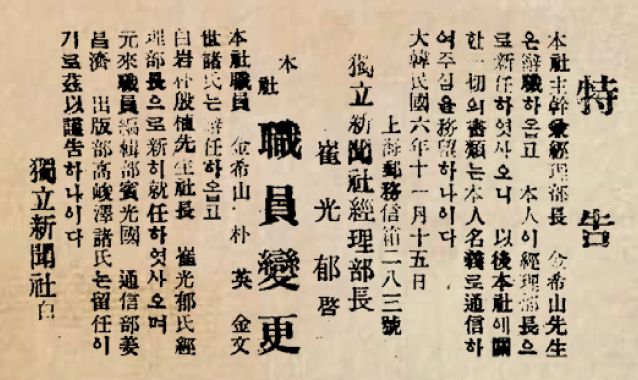 特告
本社主幹兼經理部長 金希山先生
은辭職하온고 本人이經理部長으
로新任하엿사오니 以後本社에關
한一切의書類는本人名義로通信하
여주심을務望하나이다
大韓民國六年十一月十五日
上海郵務信箱二八三號
獨立新聞社經理部長
崔光郁啓
本社職員變更
本社職員 金希山 朴英 金文
世諸氏는辭任하옵고
白岩朴殷植先生社長 崔光郁氏經
理部長으로新히就任하엿사오며
元來職員編輯部賓光國 通信部姜
昌濟 出版部高峻澤諸氏는留任이
기로玆以謹告하나이다
獨立新聞社白